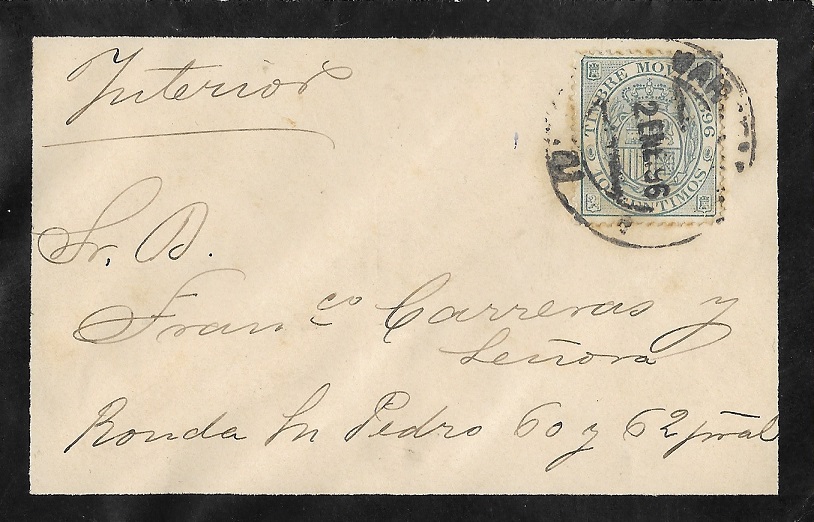 Interior
TIMBRE MOVIL 1896
10 CENTIMOS
2 ENE 96
Sr. D.
Fran.co Carreras y
Señora
Ronda Sn Pedro 60 y 62 pral